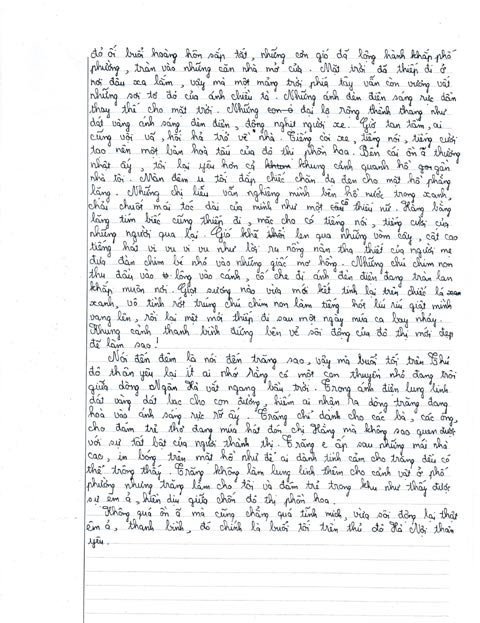 đỏ ối buổi hoàng hôn sắp tắt, những cơn gió đã lồng hành khắp phố
phường, tràn vào những căn nhà mở cửa. Mặt trời đã thiếp đi ở
nơi đâu xa lắm, vậy mà một mảng trời phía tây vẫn còn vương vất
những sợi tơ đỏ của ánh chiều tà. Những ánh đèn điện sáng rực dần
thay thế cho mặt trời. Những con đại lộ rộng thênh thang như
dát vàng ánh sáng đèn điện, đông nghẹt người xe. Giờ tan tầm, ai
cũng vội vã, hối hả trở về nhà. Tiếng còi xe, tiếng nói, tiếng cười
tạo nên một bản hoà tấu của đô thị phồn hoa. Bên cái ồn ã thường
nhật ấy, tôi lại yêu hơn cả khung cảnh quanh hồ gần
nhà tôi. Màn đêm u tối đắp chiếc chăn dạ đen cho mặt hồ phẳng
lặng. Những chị liễu vẫn nghiêng mình bên hồ nước trong xanh,
chải chuốt mái tóc dài của mình như một thiếu nữ. Hàng bằng
lăng tím biếc cũng thiếp đi, mặc cho có tiếng nói, tiếng cười của
những người qua lại. Gió khẽ len qua những vòm cây, cất cao
tiếng hát vi vu vi vu như lời ru nồng nàn tha thiết của người mẹ
đưa đàn chim bé nhỏ vào những giấc mơ hồng. Những chú chim non
thu đầu vào lông vào cánh, cố che đi ánh đèn điện đang tràn lan
khắp muôn nơi. Giọt sương nào vừa mới kết tinh lại trên chiếc lá
xanh, vô tình rớt trúng chú chim non làm tiếng hót líu ríu giật mình
vang lên, rồi lại mệt mới thiếp đi sau một ngày múa ca bay nhảy.
Khung cảnh thanh bình đứng bên vẻ sôi động của đô thị mới đẹp
đẽ làm sao!
Nói đến đêm là nói đến trăng sao, vậy mà buổi tối trên Thủ
đô thân yêu lại ít ai nhớ rằng có một con thuyền nhỏ đang trôi
giữa dòng Ngân Hà vắt ngang bầu trời. Trong ánh điện lung linh
dát vàng dát bạc cho con đường, hiếm ai nhận ra dòng trăng đang
hoà vào ánh sáng rực rỡ ấy. Trăng chỉ dành cho các bà, các ông,
cho đám trẻ thơ đang múa hát đón chị Hằng mà không sao quen được
với sự tất bật của người thành thị. Trăng e ấp sau những mái nhà
cao, in bóng trên mặt hồ như để ai dành tình cảm cho trăng đều có
thể trông thấy. Trăng không làm lung linh thêm cho cảnh vật ở phố
phường nhưng trăng làm cho tôi và đám trẻ trong khu như thấy được
sự êm ả, hiền dịu giữa chốn đô thị phồn hoa.
Không quá ồn ã mà cũng chẳng quá tĩnh mịch, vừa sôi động lại thật
êm ả, thanh bình, đó chính là buổi tối trên thủ đô Hà Nội thân
yêu.